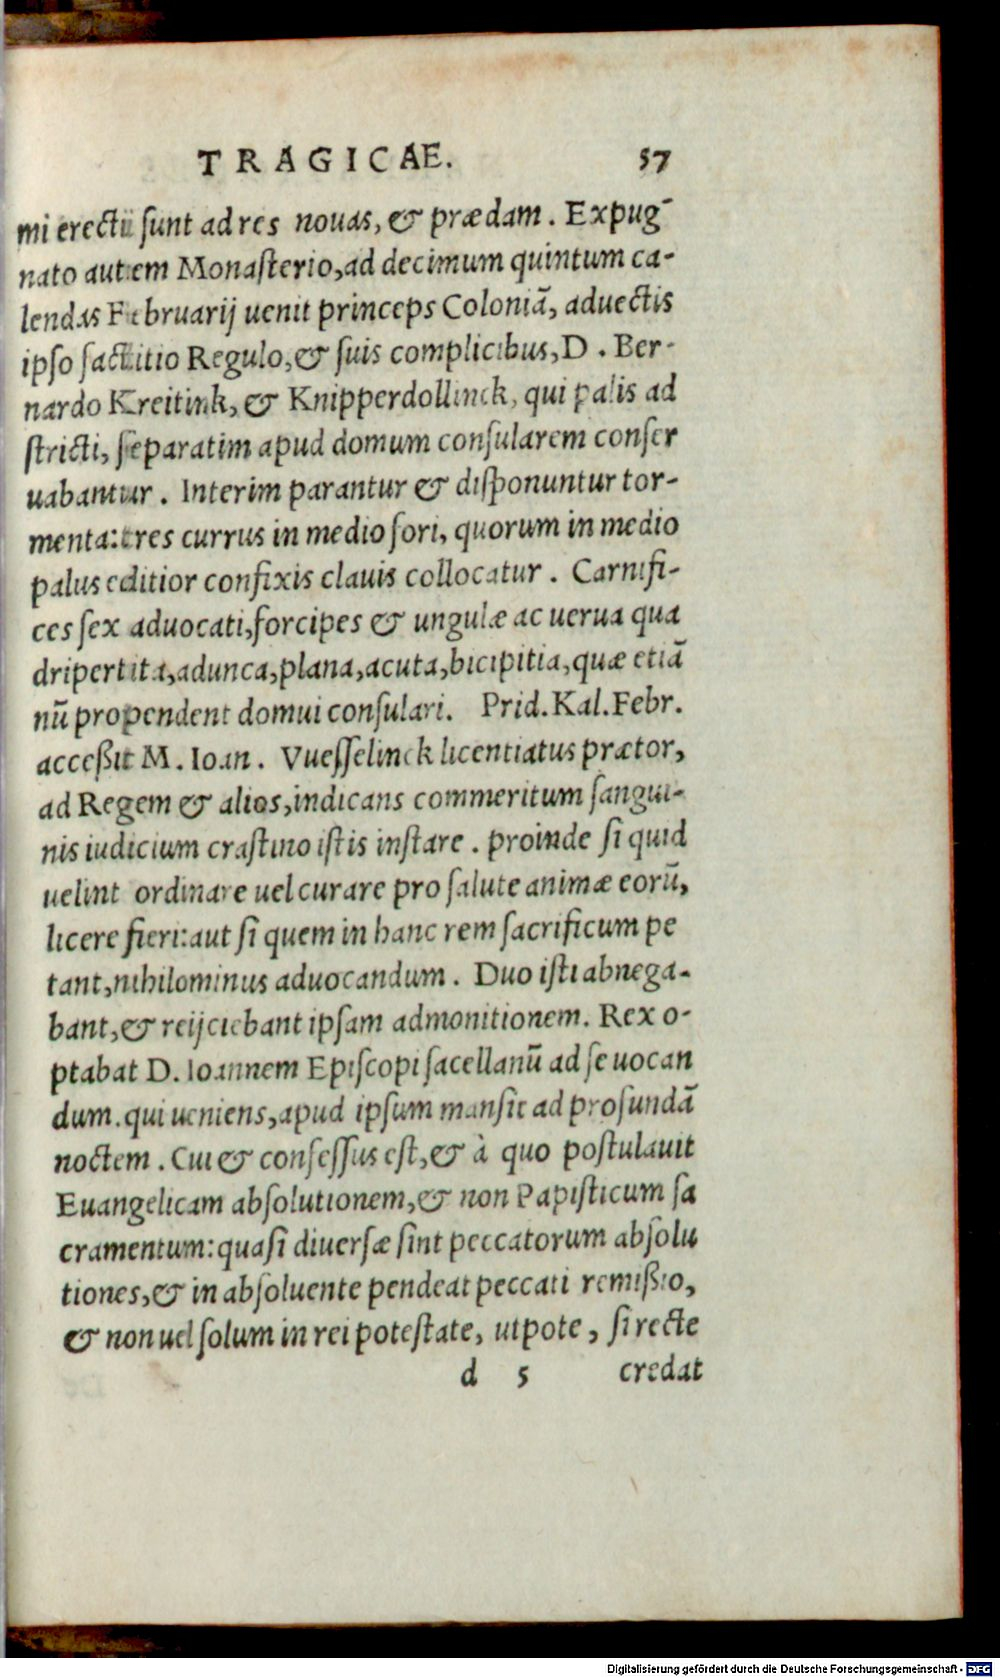 TRAGICAE. 57
mi erecti sunt ad res nouas, & prædam. Expug-
nato autem Monasterio, ad decimum quintum ca-
lendas Februarij uenit princeps Coloniã, aduectis
ipso factitio Regulo, & suis complicibus, D. Ber-
nardo Kreitink, & Knipperdollinck, qui palis ad
stricti, separatim apud domum consularem conser
uabantur. Interim parantur & disponuntur tor-
menta: tres currus in medio fori, quorum in medio
palus editior confixis clauis collocatur. Carnifi-
ces sex aduocati, forcipes & ungulæ ac uerua qua
dripertita, adunca, plana, acuta, bicipitia, quæ etiã
nũ propendent domui consulari. Prid. Kal. Febr.
acceßit M. Ioan. Vuesselinck licentiatus prætor,
ad Regem & alios, indicans commeritum sangui-
nis iudicium crastino istis instare. proinde si quid
uelint ordinare uel curare pro salute animæ eorũ,
licere fieri: aut si quem in hanc rem sacrificum pe
tant, nihilominus aduocandum. Duo isti abnega-
bant, & reijciebant ipsam admonitionem. Rex o-
ptabat D. Ioannem Episcopi sacellanũ ad se uocan
dum. qui ueniens, apud ipsum mansit ad profundã
noctem. Cui & confessus est, & à quo postulauit
Euangelicam absolutionem, & non Papisticum sa
cramentum: quasi diuersæ sint peccatorum absolu
tiones, & in absoluente pendeat peccati remißio,
& non uel solum in rei potestate, utpote, si recte
d 5 credat
Digitalisierung gefördert durch die Deutsche Forschungsgemeinschaft - DFG